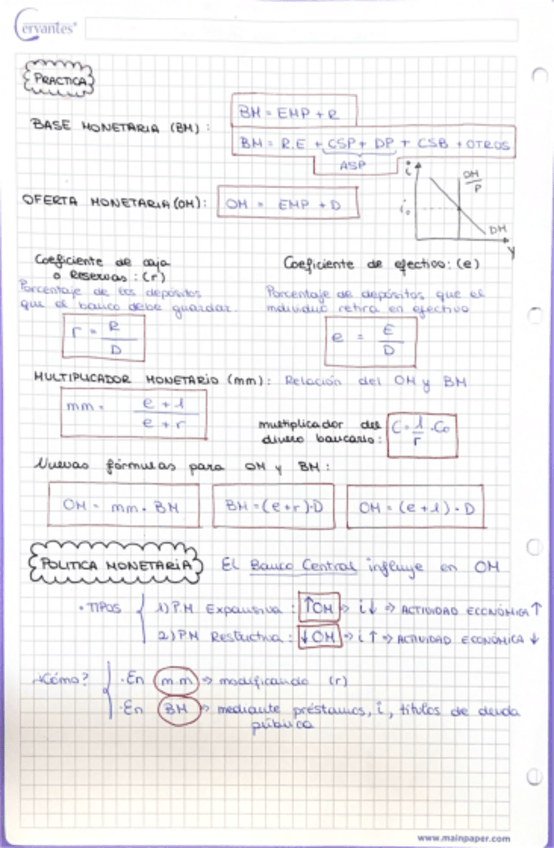 Cervantes
PRACTICA
BM = EMP + R
BASE MONETARIA (BM):
BM = R.E + CSP + DP + CSB + OTROS
ASP
OFERTA MONETARIA (OM): OM = EMP + D
i
OM
P
i₀
DM
Y
Coeficiente de caja
o Reservas: (r)
Porcentaje de los depósitos
que el banco debe guardar.
r = R
D
Coeficiente de efectivo: (e)
Porcentaje de depósitos que el
individuo retira en efectivo
e = E
D
MULTIPLICADOR MONETARIO (mm): Relación del OM y BM
mm = e + 1
e + r
multiplicador del
dinero bancario:
C = 1/r · C₀
Nuevas fórmulas para OM y BM:
OM = mm · BM
BM = (e + r) · D
OM = (e + 1) · D
POLITICA MONETARIA El Banco Central influye en OM
· TIPOS { 1) PM Expansiva: ↑OM → i↓ → ACTIVIDAD ECONÓMICA ↑
2) PM Restrictiva: ↓OM → i↑ → ACTIVIDAD ECONÓMICA ↓
¿Cómo? { · En mm → modificando (r)
· En BM → mediante préstamos, i, títulos de deuda
pública
www.mainpaper.com